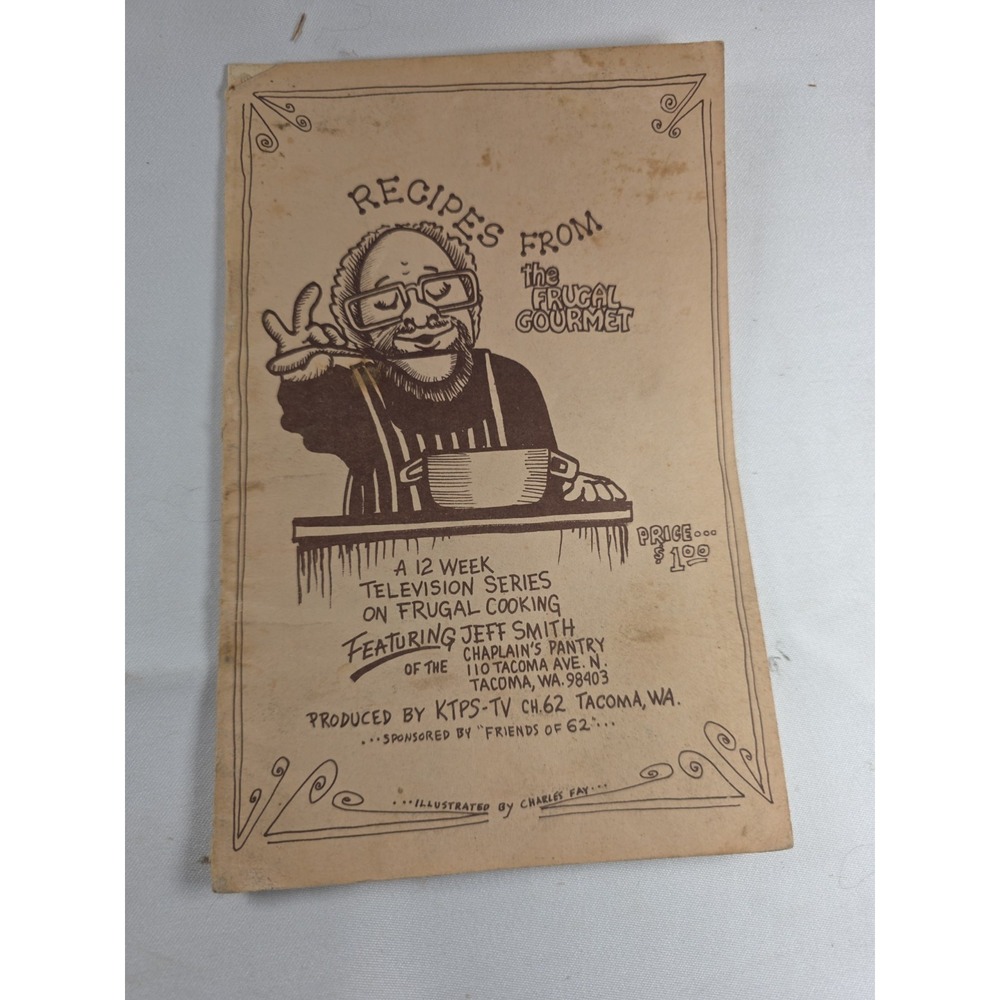 RECIPES FROM
the
FRUGAL
GOURMET
PRICE...
$1.00
A 12 WEEK
TELEVISION SERIES
ON FRUGAL COOKING
FEATURING JEFF SMITH
OF THE CHAPLAIN'S PANTRY
110 TACOMA AVE. N.
TACOMA, WA. 98403
PRODUCED BY KTPS-TV CH.62 TACOMA, WA.
...SPONSORED BY "FRIENDS OF 62"...
...ILLUSTRATED By CHARLES FAY...